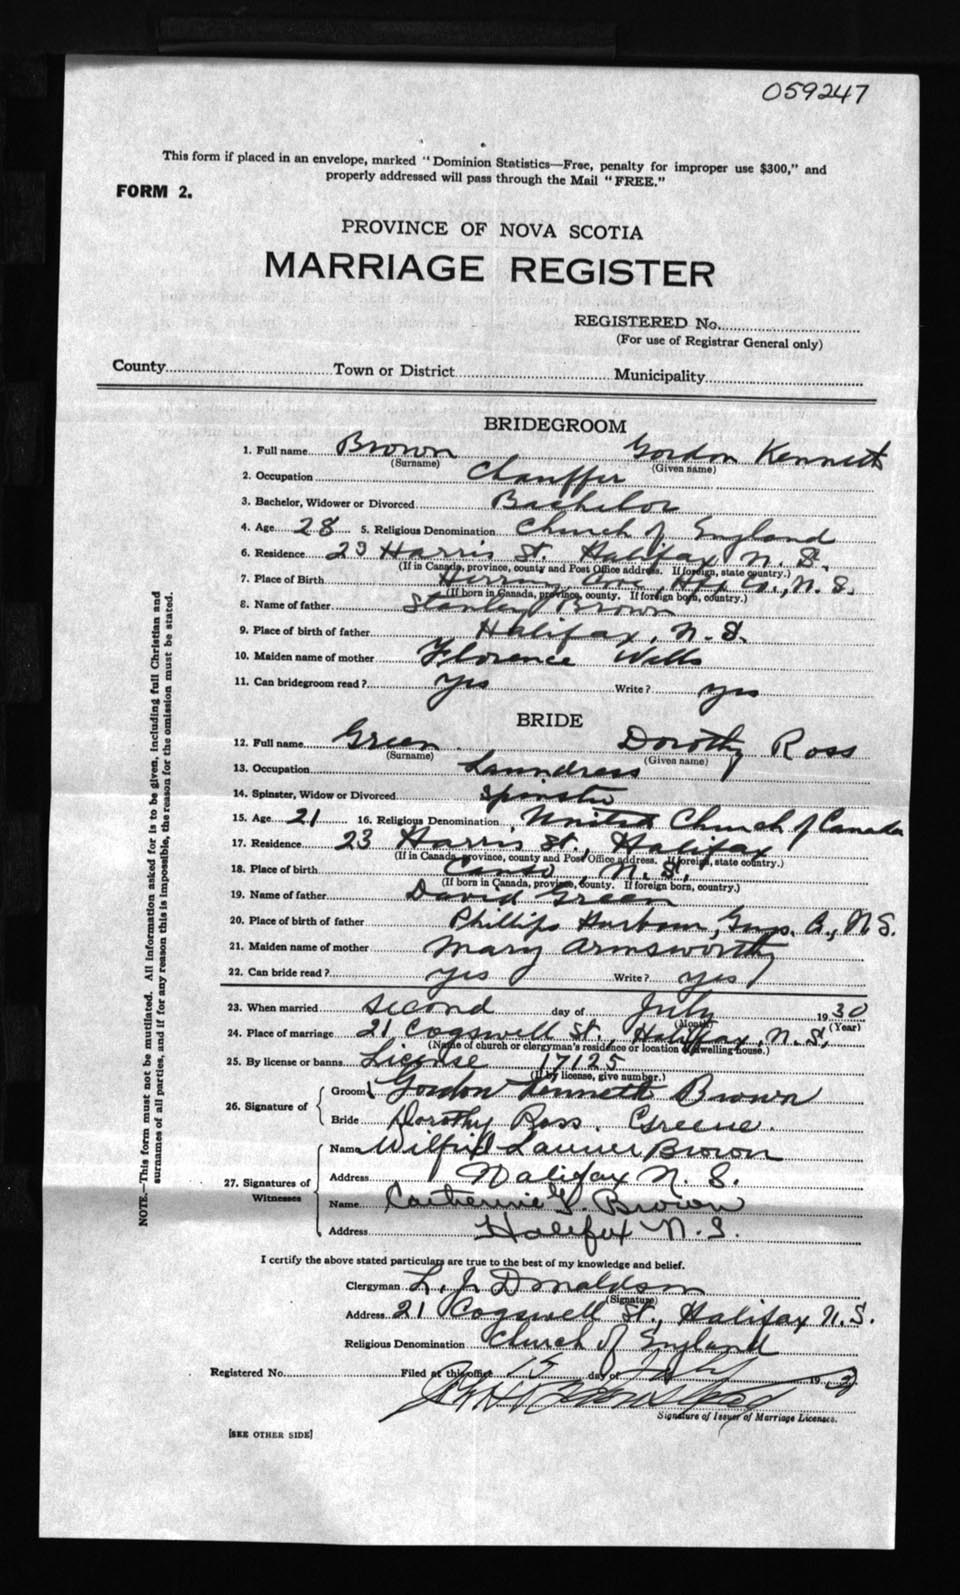 059247
This form if placed in an envelope, marked "Dominion Statistics—Free, penalty for improper use $300," and
properly addressed will pass through the Mail "FREE."
FORM 2.
PROVINCE OF NOVA SCOTIA
MARRIAGE REGISTER
REGISTERED No.
(For use of Registrar General only)
County Town or District Municipality
BRIDEGROOM
1. Full name Brown Gordon Kenneth
(Surname) (Given name)
2. Occupation Chauffer
3. Bachelor, Widower or Divorced Bachelor
4. Age 28 5. Religious Denomination Church of England
6. Residence 23 Harris St. Halifax N. S.
(If in Canada, province, county and Post Office address. If foreign, state country.)
7. Place of Birth Herring Cove, Hfx Co., N. S.
(If born in Canada, province, county. If foreign born, country.)
8. Name of father Stanley Brown
9. Place of birth of father Halifax, N. S.
10. Maiden name of mother Florence Wells
11. Can bridegroom read? yes Write? yes
BRIDE
12. Full name Green Dorothy Ross
(Surname) (Given name)
13. Occupation Laundress
14. Spinster, Widow or Divorced Spinster
15. Age 21 16. Religious Denomination United Church of Canada
17. Residence 23 Harris St., Halifax
(If in Canada, province, county and Post Office address. If foreign, state country.)
18. Place of birth Canso, N. S.
(If born in Canada, province, county. If foreign born, country.)
19. Name of father David Green
20. Place of birth of father Phillips Harbour, Guys. Co., N. S.
21. Maiden name of mother Mary Armsworthy
22. Can bride read? yes Write? yes
23. When married second day of July 1930
(Month) (Year)
24. Place of marriage 21 Cogswell St., Halifax, N. S.
(Name of church or clergyman's residence or location of dwelling house.)
25. By license or banns License 17125
(If by license, give number.)
26. Signature of Groom Gordon Kenneth Brown
Bride Dorothy Ross Greene.
27. Signatures of Witnesses Name Wilfrid Laurier Brown
Address Halifax N. S.
Name Catherine G. Brown
Address Halifax N. S.
I certify the above stated particulars are true to the best of my knowledge and belief.
Clergyman L. J. Donaldson
(Signature)
Address 21 Cogswell St., Halifax N. S.
Religious Denomination Church of England
Registered No. Filed at this office 15 day of July 193
Signature of Issuer of Marriage Licenses.
[SEE OTHER SIDE]
NOTE.—This form must not be mutilated. All information asked for is to be given, including full Christian and
surnames of all parties, and if for any reason this is impossible, the reason for the omission must be stated.